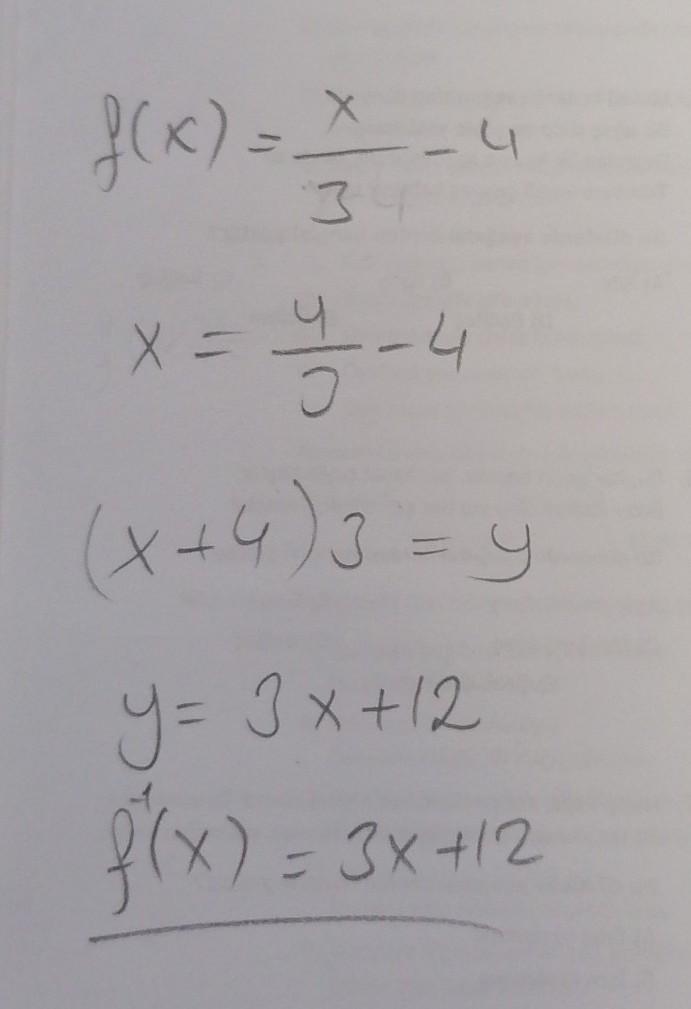 f(x) = x/3 - 4
x = y/3 - 4
(x+4)3 = y
y = 3x+12
f⁻¹(x) = 3x+12